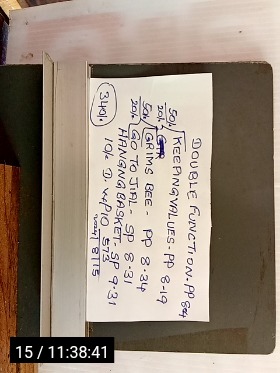 DOUBLE FUNCTION.PP 8.04
50% KEEPING VALUES-PP 8-19
20%
50% GRIMS BEE - PP 8.34
20% GO TO JIAL- SP 8-31
HANGNG BASKET-SP 9.31
10% D. W4P10 573
8115
340%
15 / 11:38:41